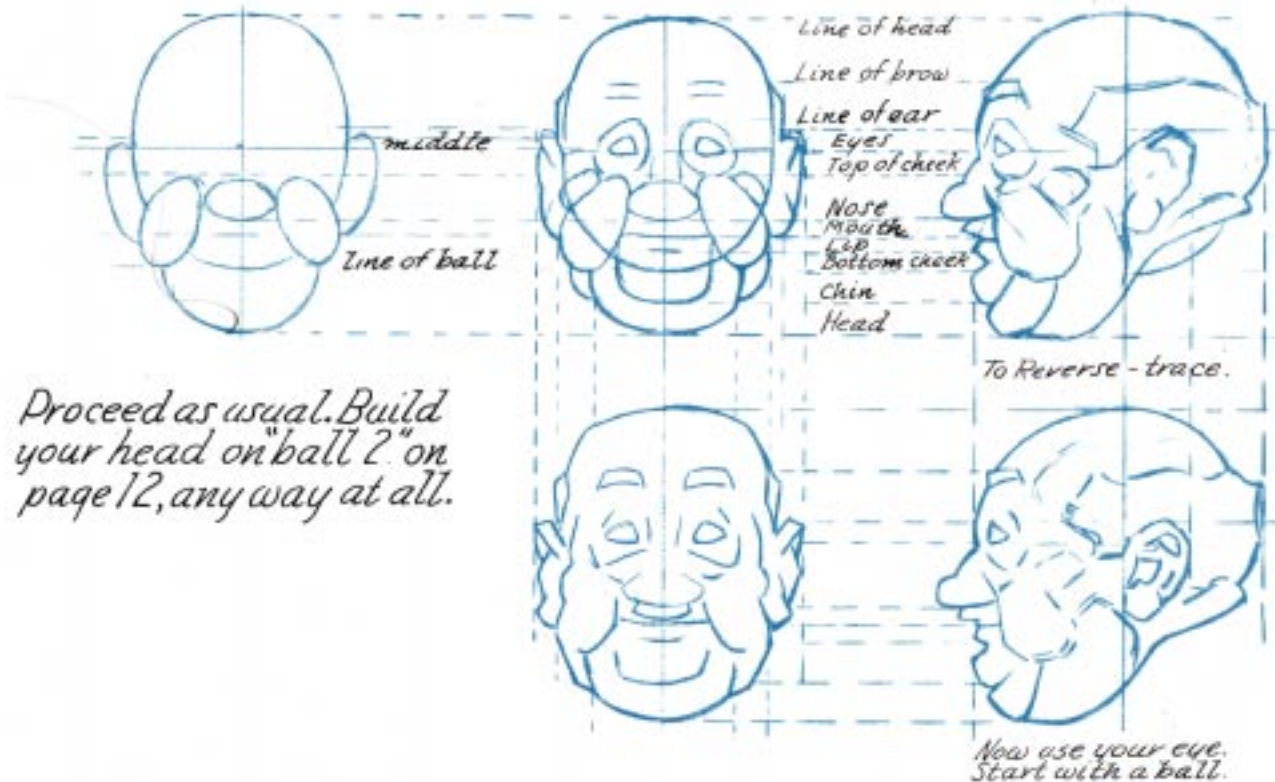 Line of head
Line of brow
Line of ear
Eyes
Top of cheek
middle
Nose
Mouth
Lip
Bottom cheek
Line of ball
Chin
Head
To Reverse - trace.
Proceed as usual. Build
your head on "ball 2" on
page 12, any way at all.
Now use your eye.
Start with a ball.